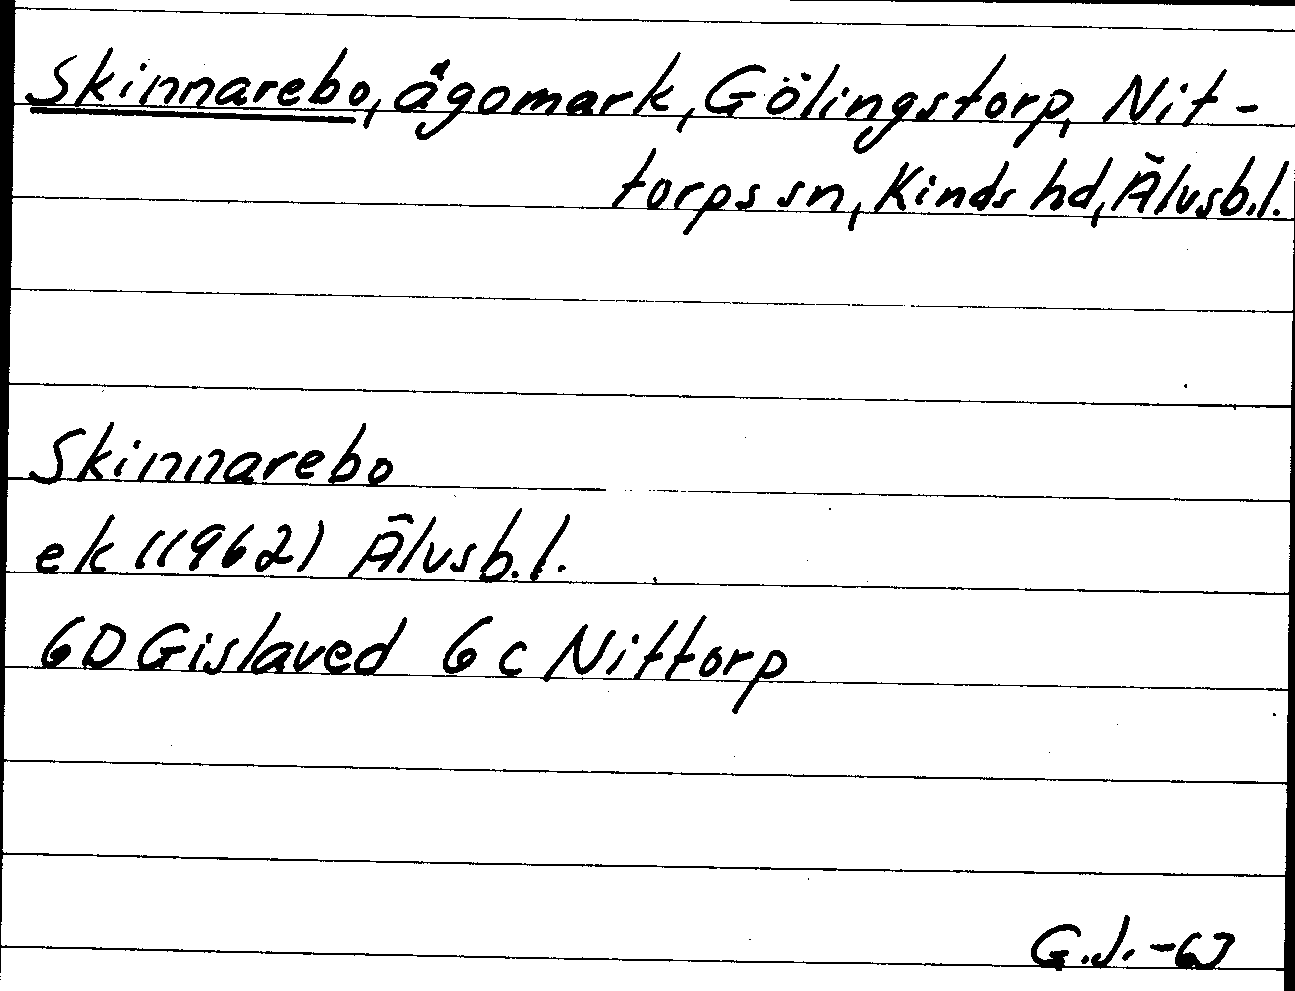 Skinnarebo, ägomark, Gölingstorp, Nit-
torps sn, Kinds hd, Älvsb.l.
Skinnarebo
ek (1962) Älvsb.l.
6D Gislaved 6c Nittorp
G.J. -63